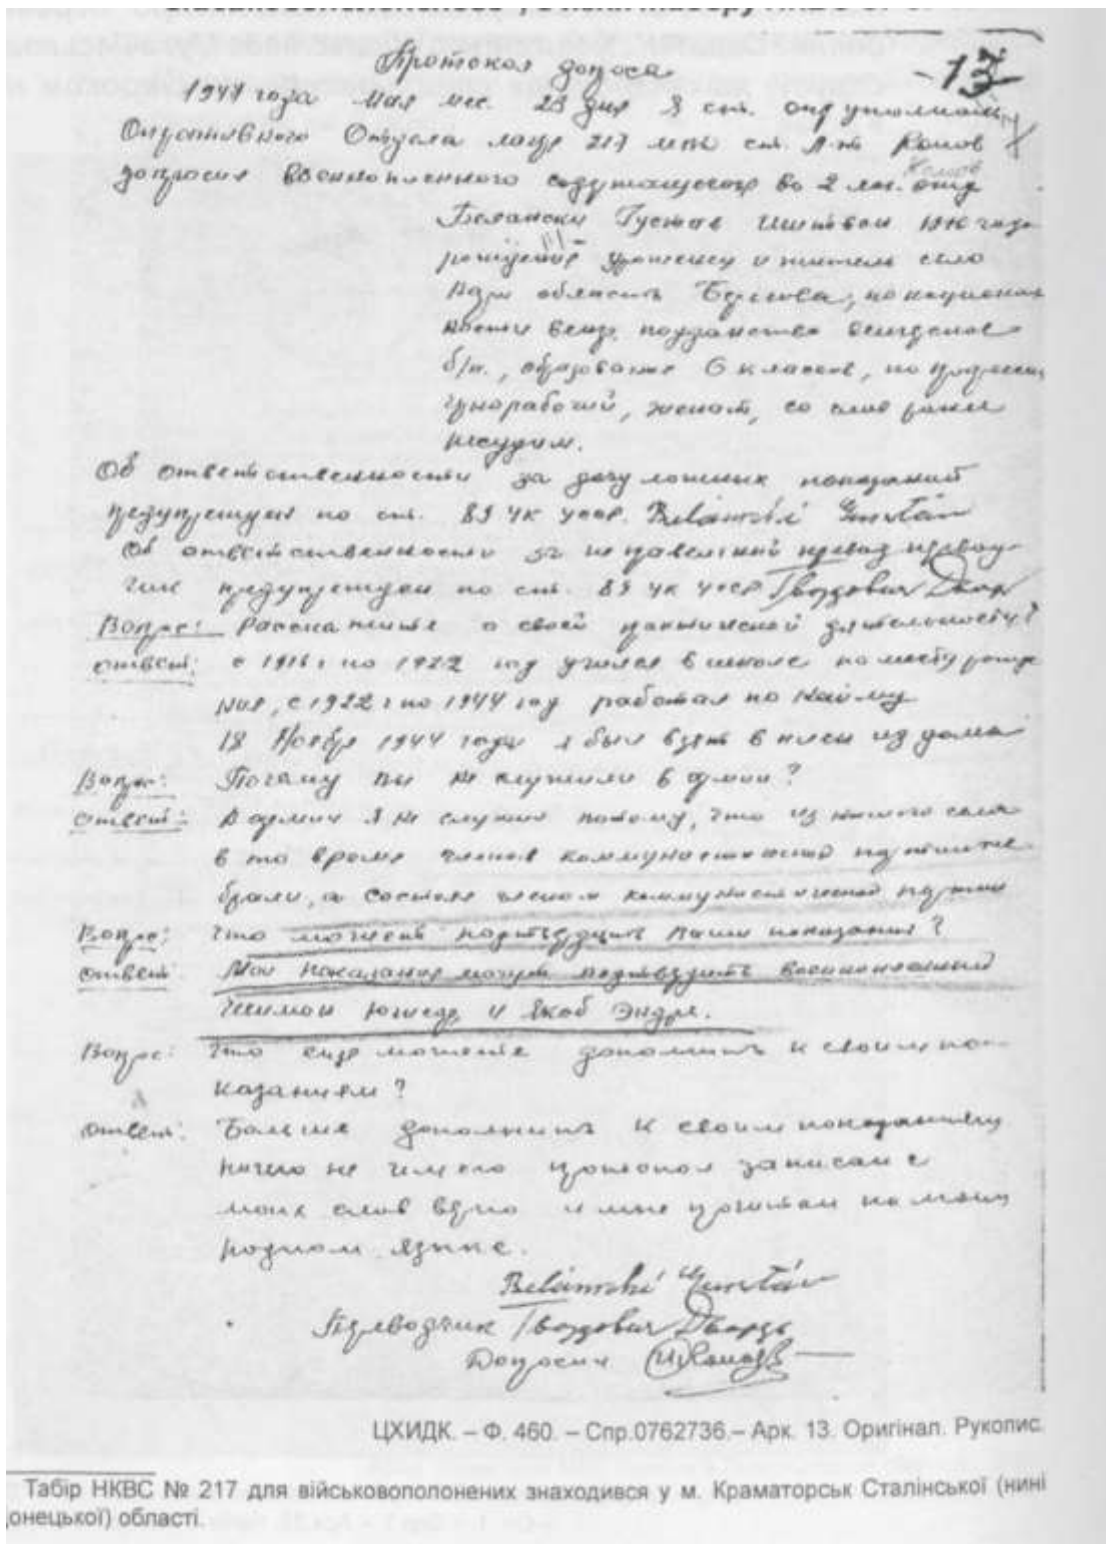 Протокол допроса
13
194 года мая мес. 23 дня Я ст. опер уполномоч.
Оперативного Отдела лагр 217 МВД ст. л-т Комов
Комов
допросил военнопленного содержащегося во 2 лаг. отд
Белански Густав Иштван года
рождения уроженец и житель село
область Берегова, по национал
ности венгр. подданство венгерское
б/п., образование 6 классов, по професии
чернорабочий, женат, со слов ранее
несудим.
Об ответственности за дачу ложных показаний
предупрежден по ст. 89 УК УССР. Belánski Gusztáv
Об ответственности за неправельний превод перевод-
чик предупрежден по ст. 89 УК УССР Гвоздович
Вопрос: Расскажите о своей практической деятельности?
ответ: с 1916 г по 1922 год учился в школе по месту рожде
ния, с 1922 г по 1944 год работал по найму
18 Ноября 1944 года я был взят в плен из дома
Вопрос: Почему вы не служили в армии?
ответ: В армии я не служил потому, что из нашего села
в то время членов коммунистической партии не
брали, а состоял членом коммунистической партии
Вопрос: Что может подтвердить ваши показания?
ответ Мои показания могут подтвердить военнопленный
и Якоб Эндре.
Вопрос: Что еще можете дополнить к своим по-
казаниям?
ответ: Больше дополнить к своим показаниям
ничего не имею протокол записан с
моих слов верно и мне прочитан на моем
родном языке.
Belánski Gusztáv
Переводчик Гвоздович
Допросил
ЦХИДК. – Ф. 460. – Спр.0762736.– Арк. 13. Оригінал. Рукопис.
Табір НКВС № 217 для військовополонених знаходився у м. Краматорськ Сталінської (нині
онецької) області.